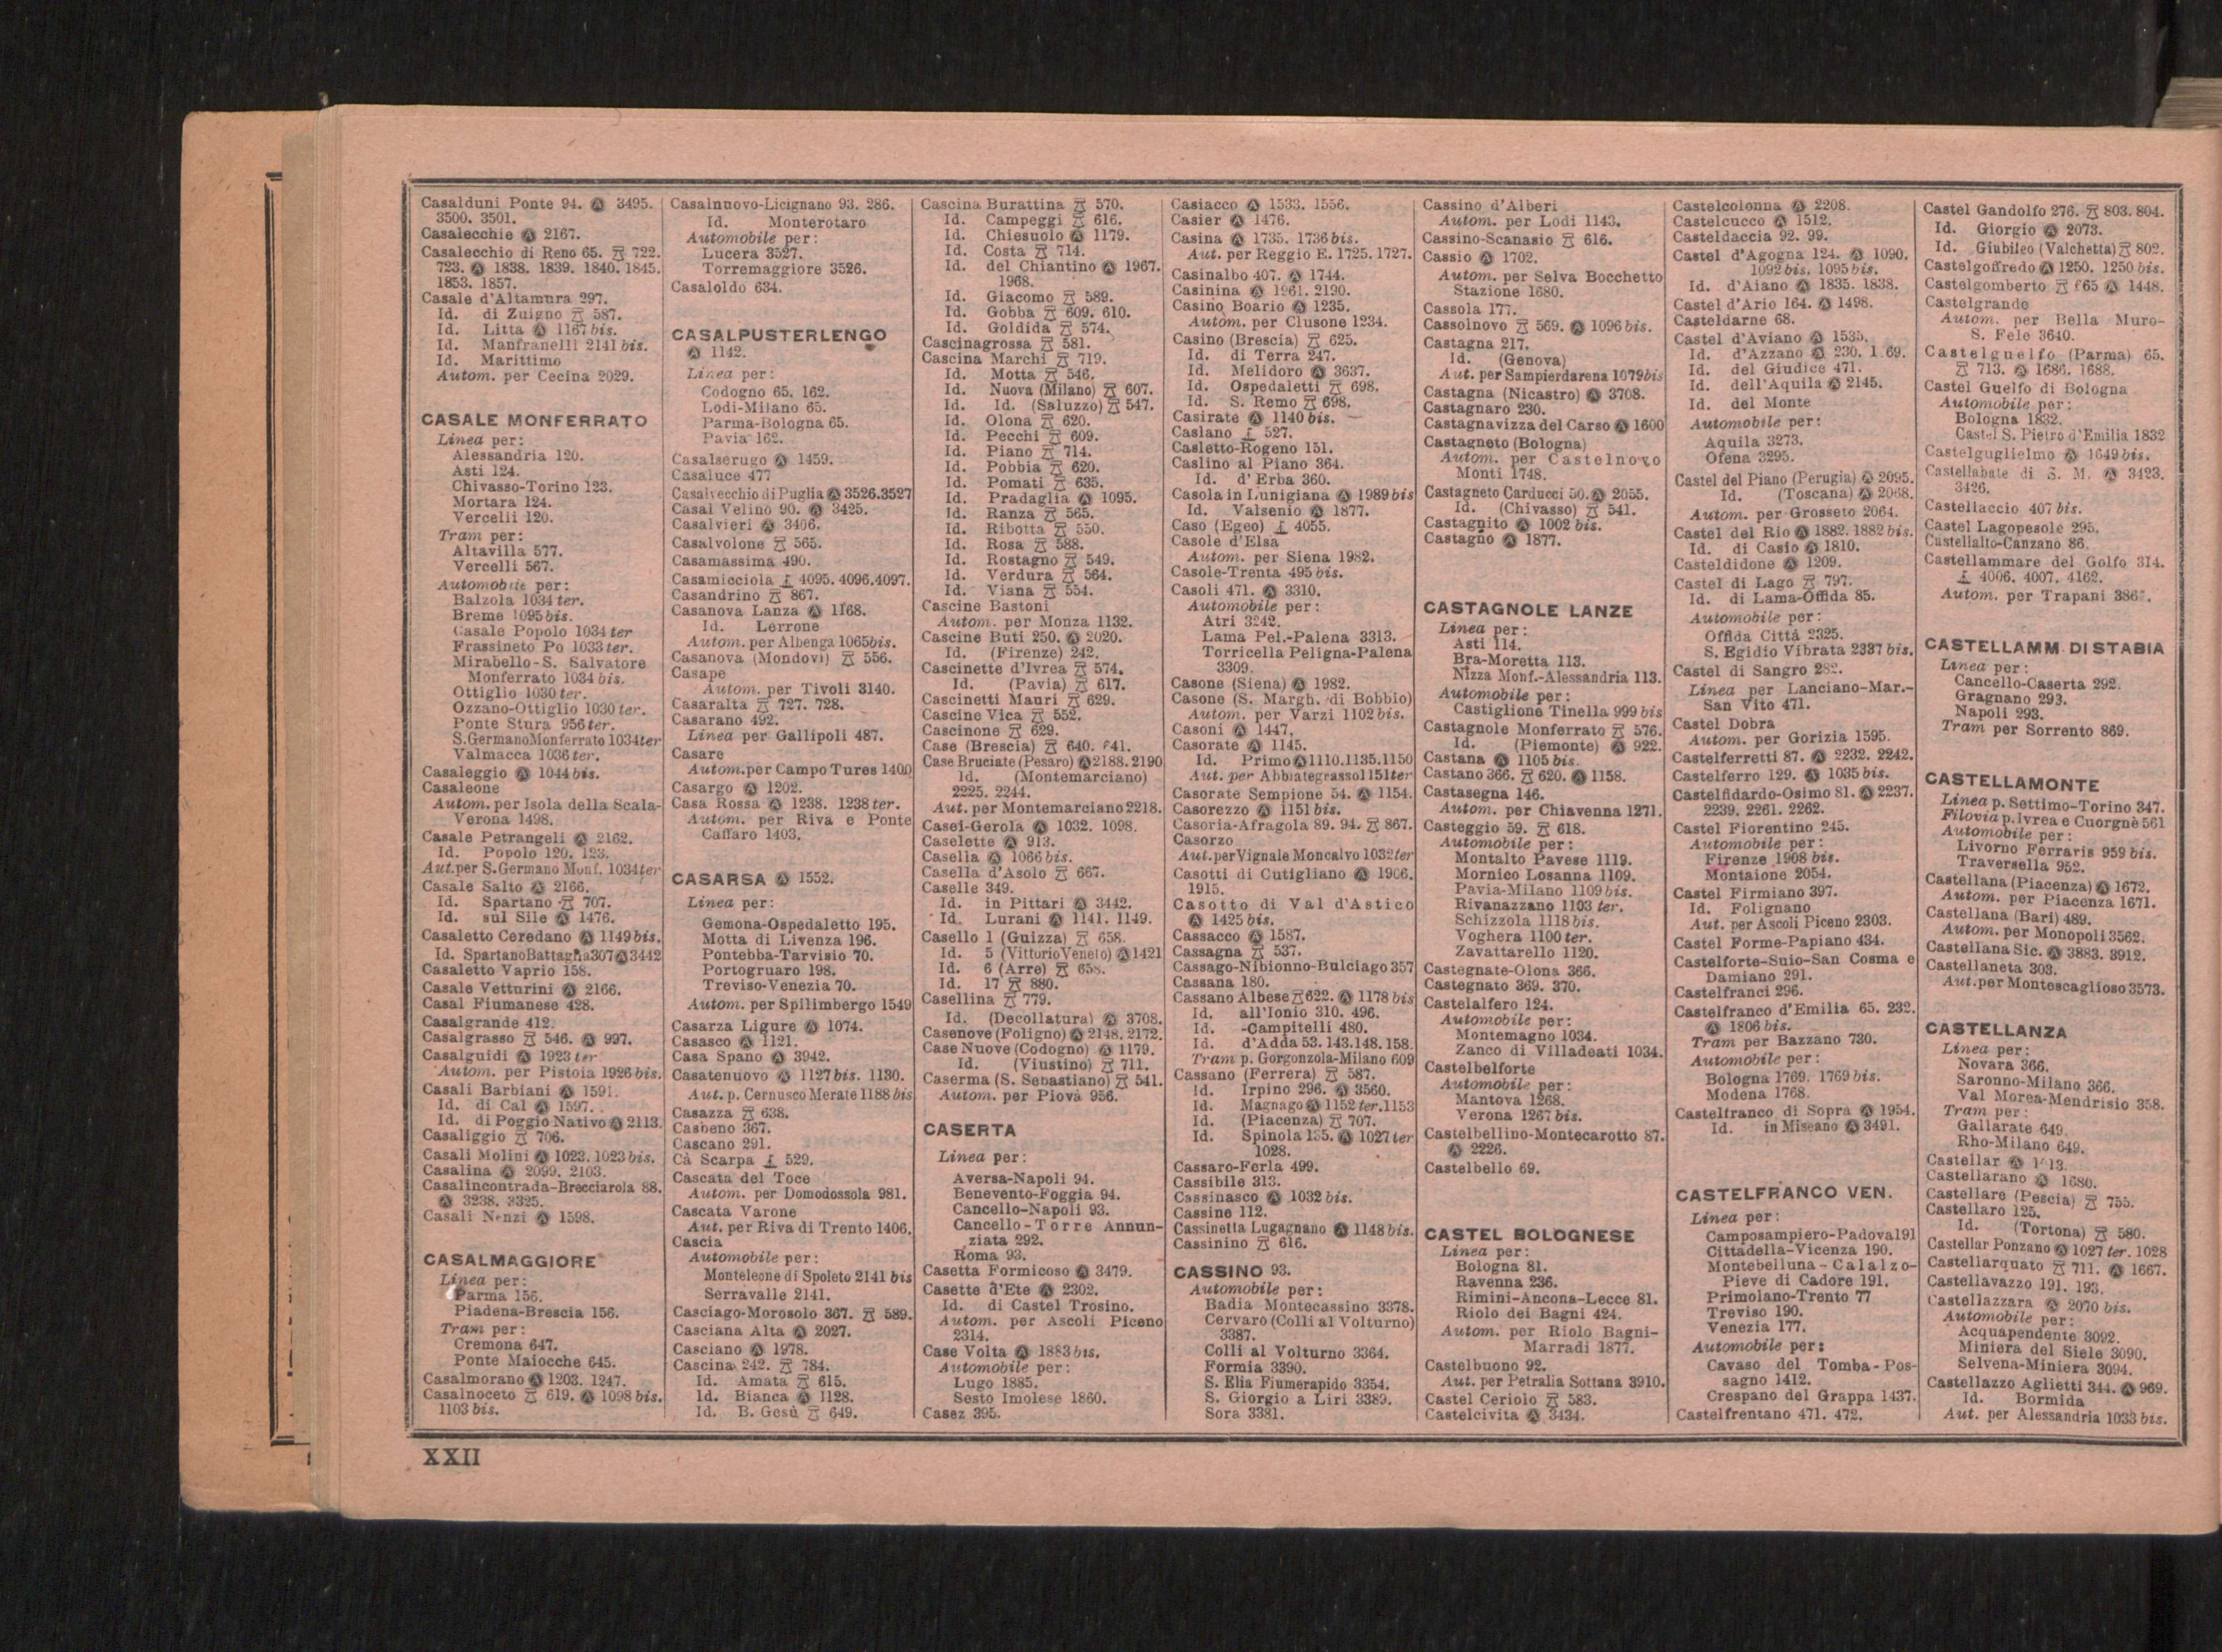 Casalduni Ponte 94. Ⓐ 3495.
3500. 3501.
Casalecchie Ⓐ 2167.
Casalecchio di Reno 65. 722.
723. Ⓐ 1838. 1839. 1840. 1845.
1853. 1857.
Casale d'Altamura 297.
Id. di Zuigno 587.
Id. Litta Ⓐ 1167 bis.
Id. Manfranelli 2141 bis.
Id. Marittimo
Autom. per Cecina 2029.
CASALE MONFERRATO
Linea per:
Alessandria 120.
Asti 124.
Chivasso-Torino 123.
Mortara 124.
Vercelli 120.
Tram per:
Altavilla 577.
Vercelli 567.
Automobile per:
Balzola 1034 ter.
Breme 1095 bis.
Casale Popolo 1034 ter
Frassineto Po 1033 ter.
Mirabello-S. Salvatore
Monferrato 1034 bis.
Ottiglio 1030 ter.
Ozzano-Ottiglio 1030 ter.
Ponte Stura 956 ter.
S.Germano Monferrato 1034 ter
Valmacca 1036 ter.
Casaleggio Ⓐ 1044 bis.
Casaleone
Autom. per Isola della Scala-
Verona 1498.
Casale Petrangeli Ⓐ 2162.
Id. Popolo 120. 123.
Aut. per S.Germano Monf. 1034 ter
Casale Salto Ⓐ 2166.
Id. Spartano 707.
Id. sul Sile Ⓐ 1476.
Casaletto Ceredano Ⓐ 1149 bis.
Id. Spartano Battaglia 307 Ⓐ 3442
Casaletto Vaprio 158.
Casale Vetturini Ⓐ 2166.
Casal Fiumanese 428.
Casalgrande 412.
Casalgrasso 546. Ⓐ 997.
Casalguidi Ⓐ 1923 ter
Autom. per Pistoia 1926 bis.
Casali Barbiani Ⓐ 1591.
Id. di Cal Ⓐ 1597.
Id. di Poggio Nativo Ⓐ 2113.
Casaliggio 706.
Casali Molini Ⓐ 1023. 1023 bis.
Casalina Ⓐ 2099. 2103.
Casalincontrada-Brecciarola 88.
Ⓐ 3238. 3325.
Casali Nenzi Ⓐ 1598.
CASALMAGGIORE
Linea per:
Parma 156.
Piadena-Brescia 156.
Tram per:
Cremona 647.
Ponte Maiocche 645.
Casalmorano Ⓐ 1203. 1247.
Casalnoceto 619. Ⓐ 1098 bis.
1103 bis.
Casalnuovo-Licignano 93. 286.
Id. Monterotaro
Automobile per:
Lucera 3527.
Torremaggiore 3526.
Casaloldo 634.
CASALPUSTERLENGO
Ⓐ 1142.
Linea per:
Codogno 65. 162.
Lodi-Milano 65.
Parma-Bologna 65.
Pavia 162.
Casalserugo Ⓐ 1459.
Casaluce 477
Casalvecchio di Puglia Ⓐ 3526.3527
Casal Velino 90. Ⓐ 3425.
Casalvieri Ⓐ 3406.
Casalvolone 565.
Casamassima 490.
Casamicciola 4095. 4096.4097.
Casandrino 867.
Casanova Lanza Ⓐ 1168.
Id. Lerrone
Autom. per Albenga 1065bis.
Casanova (Mondovì) 556.
Casape
Autom. per Tivoli 3140.
Casaralta 727. 728.
Casarano 492.
Linea per Gallipoli 487.
Casare
Autom. per Campo Tures 1400
Casargo Ⓐ 1202.
Casa Rossa Ⓐ 1238. 1238 ter.
Autom. per Riva e Ponte
Caffaro 1403.
CASARSA Ⓐ 1552.
Linea per:
Gemona-Ospedaletto 195.
Motta di Livenza 196.
Pontebba-Tarvisio 70.
Portogruaro 198.
Treviso-Venezia 70.
Autom. per Spilimbergo 1549
Casarza Ligure Ⓐ 1074.
Casasco Ⓐ 1121.
Casa Spano Ⓐ 3942.
Casatenuovo Ⓐ 1127 bis. 1130.
Aut. p. Cernusco Merate 1188 bis
Casazza 638.
Casbeno 367.
Cascano 291.
Cà Scarpa 529.
Cascata del Toce
Autom. per Domodossola 981.
Cascata Varone
Aut. per Riva di Trento 1406.
Cascia
Automobile per:
Monteleone di Spoleto 2141 bis
Serravalle 2141.
Casciago-Morosolo 367. 589.
Casciana Alta Ⓐ 2027.
Casciano Ⓐ 1978.
Cascina 242. 784.
Id. Amata 615.
Id. Bianca Ⓐ 1128.
Id. B. Gesù 649.
Cascina Burattina 570.
Id. Campeggi 616.
Id. Chiesuolo Ⓐ 1179.
Id. Costa 714.
Id. del Chiantino Ⓐ 1967.
1968.
Id. Giacomo 589.
Id. Gobba 609. 610.
Id. Goldida 574.
Cascinagrossa 581.
Cascina Marchi 719.
Id. Motta 546.
Id. Nuova (Milano) 607.
Id. Id. (Saluzzo) 547.
Id. Olona 620.
Id. Pecchi 609.
Id. Piano 714.
Id. Pobbia 620.
Id. Pomati 635.
Id. Pradaglia Ⓐ 1095.
Id. Ranza 565.
Id. Ribotta 550.
Id. Rosa 588.
Id. Rostagno 549.
Id. Verdura 564.
Id. Viana 554.
Cascine Bastoni
Autom. per Monza 1132.
Cascine Buti 250. Ⓐ 2020.
Id. (Firenze) 242.
Cascinette d'Ivrea 574.
Id. (Pavia) 617.
Cascinetti Mauri 629.
Cascine Vica 552.
Cascinone 629.
Case (Brescia) 640. 641.
Case Bruciate (Pesaro) Ⓐ 2188. 2190
Id. (Montemarciano)
2225. 2244.
Aut. per Montemarciano 2218.
Casei-Gerola Ⓐ 1032. 1098.
Caselette Ⓐ 913.
Casella Ⓐ 1066 bis.
Casella d'Asolo 667.
Caselle 349.
Id. in Pittari Ⓐ 3442.
Id. Lurani Ⓐ 1141. 1149.
Casello 1 (Guizza) 658.
Id. 5 (Vittorio Veneto) Ⓐ 1421
Id. 6 (Arre) 658.
Id. 17 880.
Casellina 779.
Id. (Decollatura) Ⓐ 3708.
Casenove (Foligno) Ⓐ 2148. 2172.
Case Nuove (Codogno) Ⓐ 1179.
Id. (Viustino) 711.
Caserma (S. Sebastiano) 541.
Autom. per Piovà 956.
CASERTA
Linea per:
Aversa-Napoli 94.
Benevento-Foggia 94.
Cancello-Napoli 93.
Cancello-Torre Annun-
ziata 292.
Roma 93.
Casetta Formicoso Ⓐ 3479.
Casette d'Ete Ⓐ 2302.
Id. di Castel Trosino.
Autom. per Ascoli Piceno
2314.
Case Volta Ⓐ 1883 bis.
Automobile per:
Lugo 1885.
Sesto Imolese 1860.
Casez 395.
Casiacco Ⓐ 1533. 1556.
Casier Ⓐ 1476.
Casina Ⓐ 1735. 1736 bis.
Aut. per Reggio E. 1725. 1727.
Casinalbo 407. Ⓐ 1744.
Casinina Ⓐ 1961. 2190.
Casino Boario Ⓐ 1235.
Autom. per Clusone 1234.
Casino (Brescia) 625.
Id. di Terra 247.
Id. Melidoro Ⓐ 3637.
Id. Ospedaletti 698.
Id. S. Remo 698.
Casirate Ⓐ 1140 bis.
Caslano 527.
Casletto-Rogeno 151.
Caslino al Piano 364.
Id. d'Erba 360.
Casola in Lunigiana Ⓐ 1989 bis
Id. Valsenio Ⓐ 1877.
Caso (Egeo) 4055.
Casole d'Elsa
Autom. per Siena 1982.
Casole-Trenta 495 bis.
Casoli 471. Ⓐ 3310.
Automobile per:
Atri 3242.
Lama Pel.-Palena 3313.
Torricella Peligna-Palena
3309.
Casone (Siena) Ⓐ 1982.
Casone (S. Margh. di Bobbio)
Autom. per Varzi 1102 bis.
Casoni Ⓐ 1447.
Casorate Ⓐ 1145.
Id. Primo Ⓐ 1110.1135.1150
Aut. per Abbiategrasso 1151 ter
Casorate Sempione 54. Ⓐ 1154.
Casorezzo Ⓐ 1151 bis.
Casoria-Afragola 89. 94. 867.
Casorzo
Aut. per Vignale Moncalvo 1032 ter
Casotti di Cutigliano Ⓐ 1906.
1915.
Casotto di Val d'Astico
Ⓐ 1425 bis.
Cassacco Ⓐ 1587.
Cassagna 537.
Cassago-Nibionno-Bulciago 357
Cassana 180.
Cassano Albese 622. Ⓐ 1178 bis
Id. all'Ionio 310. 496.
Id. -Campitelli 480.
Id. d'Adda 53. 143.148. 158.
Tram p. Gorgonzola-Milano 609
Cassano (Ferrera) 587.
Id. Irpino 296. Ⓐ 3560.
Id. Magnago Ⓐ 1152 ter.1153
Id. (Piacenza) 707.
Id. Spinola 135. Ⓐ 1027 ter
1028.
Cassaro-Ferla 499.
Cassibile 313.
Cassinasco Ⓐ 1032 bis.
Cassine 112.
Cassinetta Lugagnano Ⓐ 1148 bis.
Cassinino 616.
CASSINO 93.
Automobile per:
Badia Montecassino 3378.
Cervaro (Colli al Volturno)
3387.
Colli al Volturno 3364.
Formia 3390.
S. Elia Fiumerapido 3354.
S. Giorgio a Liri 3389.
Sora 3381.
Cassino d'Alberi
Autom. per Lodi 1143.
Cassino-Scanasio 616.
Cassio Ⓐ 1702.
Autom. per Selva Bocchetto
Stazione 1680.
Cassola 177.
Cassolnovo 569. Ⓐ 1096 bis.
Castagna 217.
Id. (Genova)
Aut. per Sampierdarena 1079 bis
Castagna (Nicastro) Ⓐ 3708.
Castagnaro 230.
Castagnavizza del Carso Ⓐ 1600
Castagneto (Bologna)
Autom. per Castelnovo
Monti 1748.
Castagneto Carducci 50. Ⓐ 2055.
Id. (Chivasso) 541.
Castagnito Ⓐ 1002 bis.
Castagno Ⓐ 1877.
CASTAGNOLE LANZE
Linea per:
Asti 114.
Bra-Moretta 113.
Nizza Monf.-Alessandria 113.
Automobile per:
Castiglione Tinella 999 bis
Castagnole Monferrato 576.
Id. (Piemonte) Ⓐ 922.
Castana Ⓐ 1105 bis.
Castano 366. 620. Ⓐ 1158.
Castasegna 146.
Autom. per Chiavenna 1271.
Casteggio 59. 618.
Automobile per:
Montalto Pavese 1119.
Mornico Losanna 1109.
Pavia-Milano 1109 bis.
Rivanazzano 1103 ter.
Schizzola 1118 bis.
Voghera 1100 ter.
Zavattarello 1120.
Castegnate-Olona 366.
Castegnato 369. 370.
Castelalfero 124.
Automobile per:
Montemagno 1034.
Zanco di Villadeati 1034.
Castelbelforte
Automobile per:
Mantova 1268.
Verona 1267 bis.
Castelbellino-Montecarotto 87.
Ⓐ 2226.
Castelbello 69.
CASTEL BOLOGNESE
Linea per:
Bologna 81.
Ravenna 236.
Rimini-Ancona-Lecce 81.
Riolo dei Bagni 424.
Autom. per Riolo Bagni-
Marradi 1877.
Castelbuono 92.
Aut. per Petralia Sottana 3910.
Castel Ceriolo 583.
Castelcivita Ⓐ 3434.
Castelcolonna Ⓐ 2208.
Castelcucco Ⓐ 1512.
Casteldaccia 92. 99.
Castel d'Agogna 124. Ⓐ 1090.
1092 bis. 1095 bis.
Id. d'Aiano Ⓐ 1835. 1838.
Castel d'Ario 164. Ⓐ 1498.
Casteldarne 68.
Castel d'Aviano Ⓐ 1535.
Id. d'Azzano Ⓐ 230.
Id. del Giudice 471.
Id. dell'Aquila Ⓐ 2145.
Id. del Monte
Automobile per:
Aquila 3273.
Ofena 3295.
Castel del Piano (Perugia) Ⓐ 2095.
Id. (Toscana) Ⓐ 2068.
Autom. per Grosseto 2064.
Castel del Rio Ⓐ 1882. 1882 bis.
Id. di Casio Ⓐ 1810.
Casteldidone Ⓐ 1209.
Castel di Lago 797.
Id. di Lama-Offida 85.
Automobile per:
Offida Città 2325.
S. Egidio Vibrata 2337 bis.
Castel di Sangro 282.
Linea per Lanciano-Mar.-
San Vito 471.
Castel Dobra
Autom. per Gorizia 1595.
Castelferretti 87. Ⓐ 2232. 2242.
Castelferro 129. Ⓐ 1035 bis.
Castelfidardo-Osimo 81. Ⓐ 2237.
2239. 2261. 2262.
Castel Fiorentino 245.
Automobile per:
Firenze 1908 bis.
Montaione 2054.
Castel Firmiano 397.
Id. Folignano
Aut. per Ascoli Piceno 2303.
Castel Forme-Papiano 434.
Castelforte-Suio-San Cosma e
Damiano 291.
Castelfranci 296.
Castelfranco d'Emilia 65. 232.
Ⓐ 1806 bis.
Tram per Bazzano 730.
Automobile per:
Bologna 1769. 1769 bis.
Modena 1768.
Castelfranco di Sopra Ⓐ 1954.
Id. in Miscano Ⓐ 3491.
CASTELFRANCO VEN.
Linea per:
Camposampiero-Padova 191
Cittadella-Vicenza 190.
Montebelluna-Calalzo-
Pieve di Cadore 191.
Primolano-Trento 77
Treviso 190.
Venezia 177.
Automobile per:
Cavaso del Tomba-Pos-
sagno 1412.
Crespano del Grappa 1437.
Castelfrentano 471. 472.
Castel Gandolfo 276. 803. 804.
Id. Giorgio Ⓐ 2073.
Id. Giubileo (Valchetta) 802.
Castelgoffredo Ⓐ 1250. 1250 bis.
Castelgomberto 665 Ⓐ 1448.
Castelgrande
Autom. per Bella Muro-
S. Fele 3640.
Castelguelfo (Parma) 65.
713. Ⓐ 1686. 1688.
Castel Guelfo di Bologna
Automobile per:
Bologna 1832.
Castel S. Pietro d'Emilia 1832
Castelguglielmo Ⓐ 1649 bis.
Castellabate di S. M. Ⓐ 3423.
3426.
Castellaccio 407 bis.
Castel Lagopesole 295.
Castellalto-Canzano 86.
Castellammare del Golfo 314.
4006. 4007. 4162.
Autom. per Trapani
CASTELLAMM. DI STABIA
Linea per:
Cancello-Caserta 292.
Gragnano 293.
Napoli 293.
Tram per Sorrento 869.
CASTELLAMONTE
Linea p. Settimo-Torino 347.
Filovia p. Ivrea e Cuorgnè 561
Automobile per:
Livorno Ferraris 959 bis.
Traversella 952.
Castellana (Piacenza) Ⓐ 1672.
Autom. per Piacenza 1671.
Castellana (Bari) 489.
Autom. per Monopoli 3562.
Castellana Sic. Ⓐ 3883. 3912.
Castellaneta 303.
Aut. per Montescaglioso 3573.
CASTELLANZA
Linea per:
Novara 366.
Saronno-Milano 366.
Val Morea-Mendrisio 358.
Tram per:
Gallarate 649.
Rho-Milano 649.
Castellar Ⓐ
Castellarano Ⓐ 1680.
Castellare (Pescia) 755.
Castellaro 125.
Id. (Tortona) 580.
Castellar Ponzano Ⓐ 1027 ter. 1028
Castellarquato 711. Ⓐ 1667.
Castellavazzo 191. 193.
Castellazzara Ⓐ 2070 bis.
Automobile per:
Acquapendente 3092.
Miniera del Siele 3090.
Selvena-Miniera 3094.
Castellazzo Aglietti 344. Ⓐ 969.
Id. Bormida
Aut. per Alessandria 1033 bis.
XXII